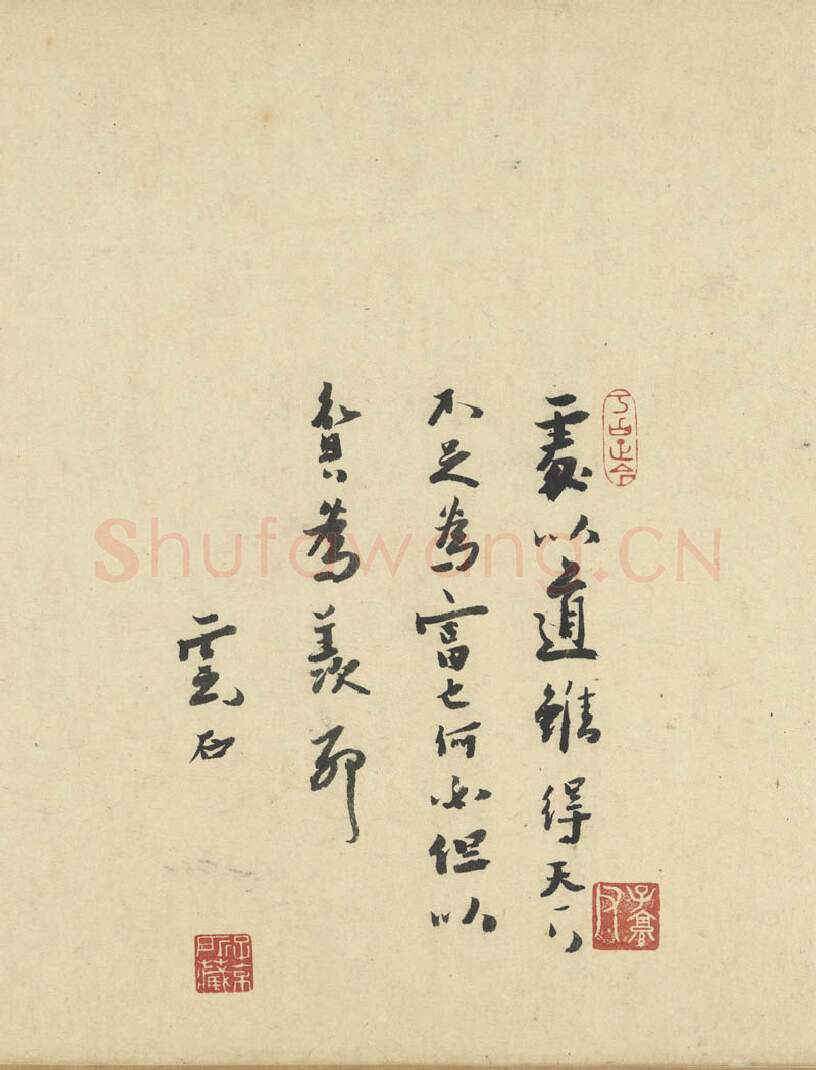 處以道雖得天下
不足為富也何必但以
貧為羨耶
雲石
Shufawang.CN